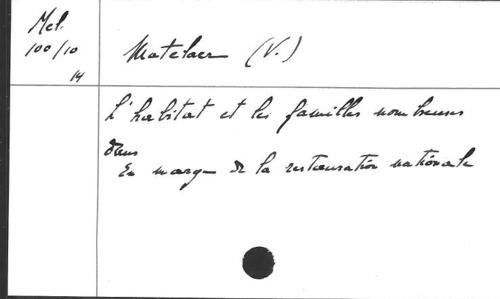 Mel.
100/10
14
Matelaer (V.)
L'habitat et les familles nombreuses
dans
En marge de la restauration nationale